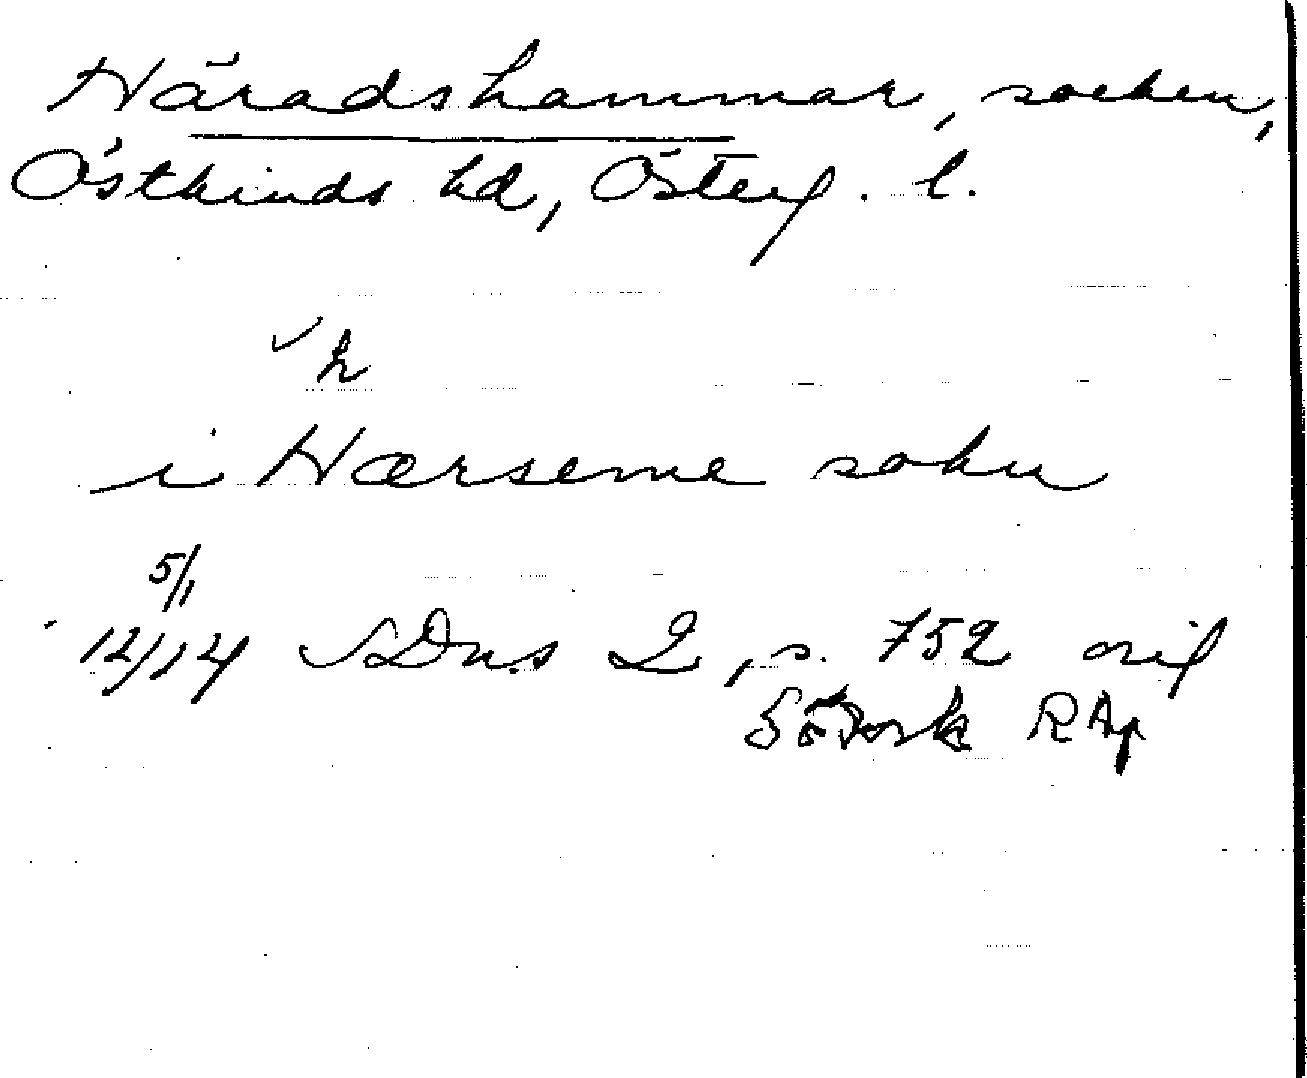 Häradshammar, socken,
Östkinds hd, Österg. l.
h
i Hærseme sokn
5/1
1414 SDns 2, s. 752 orig
RAp